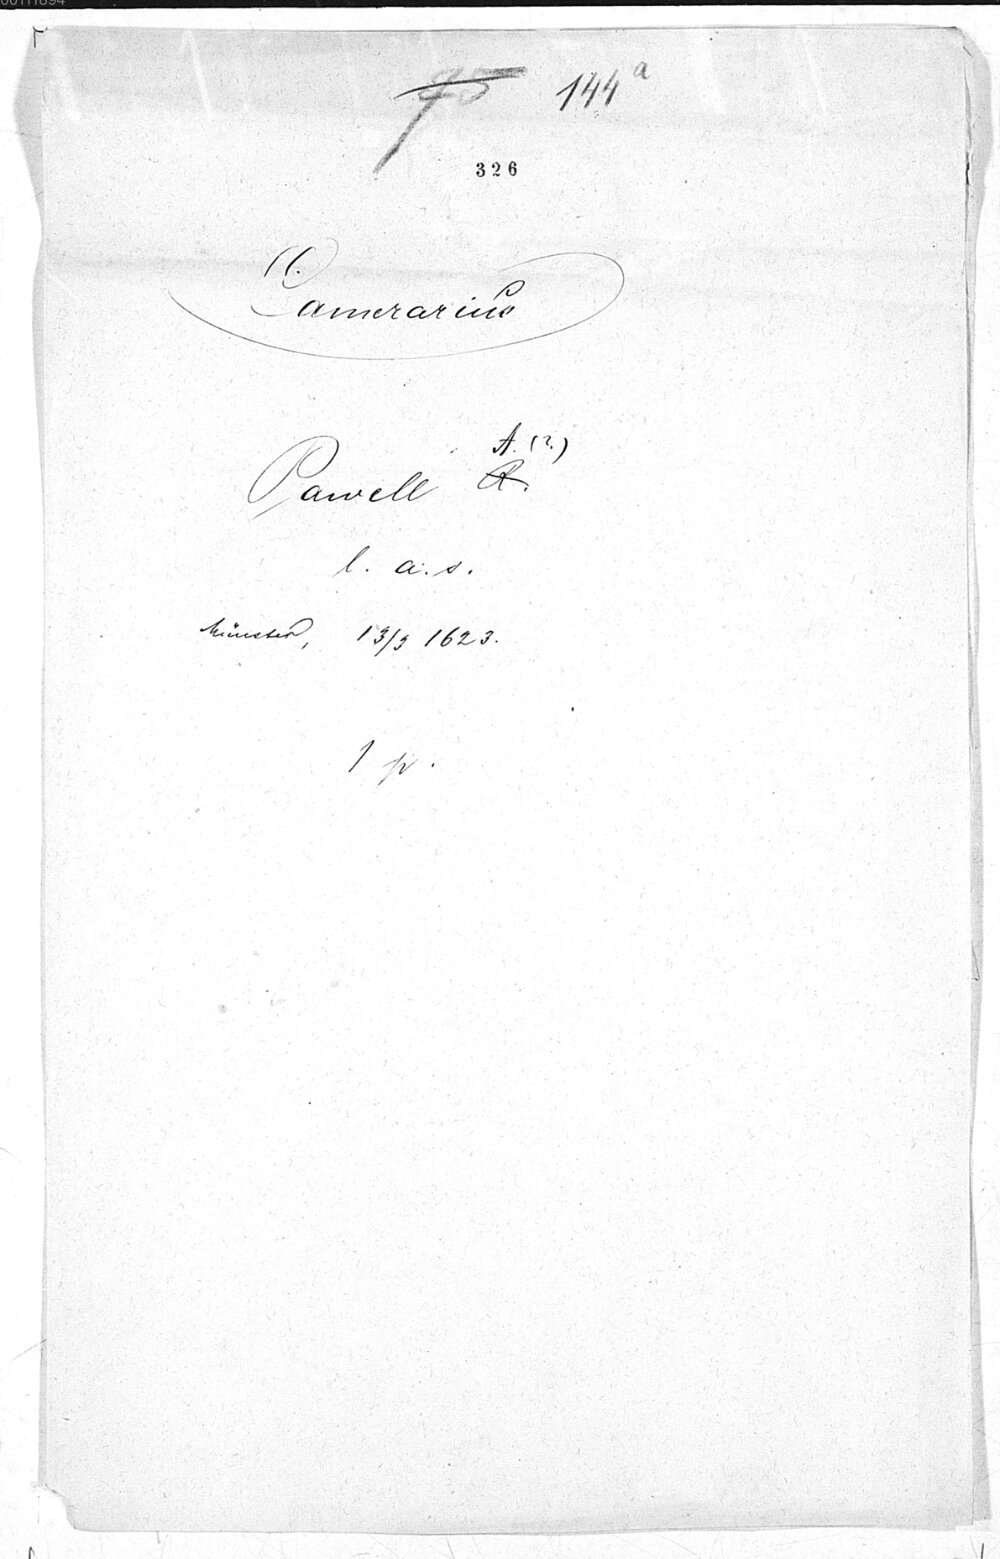 75 144a
326
Camerarius
A. (?)
Pawell R.
l. a. s.
Münster, 13/3 1623.
1 p.